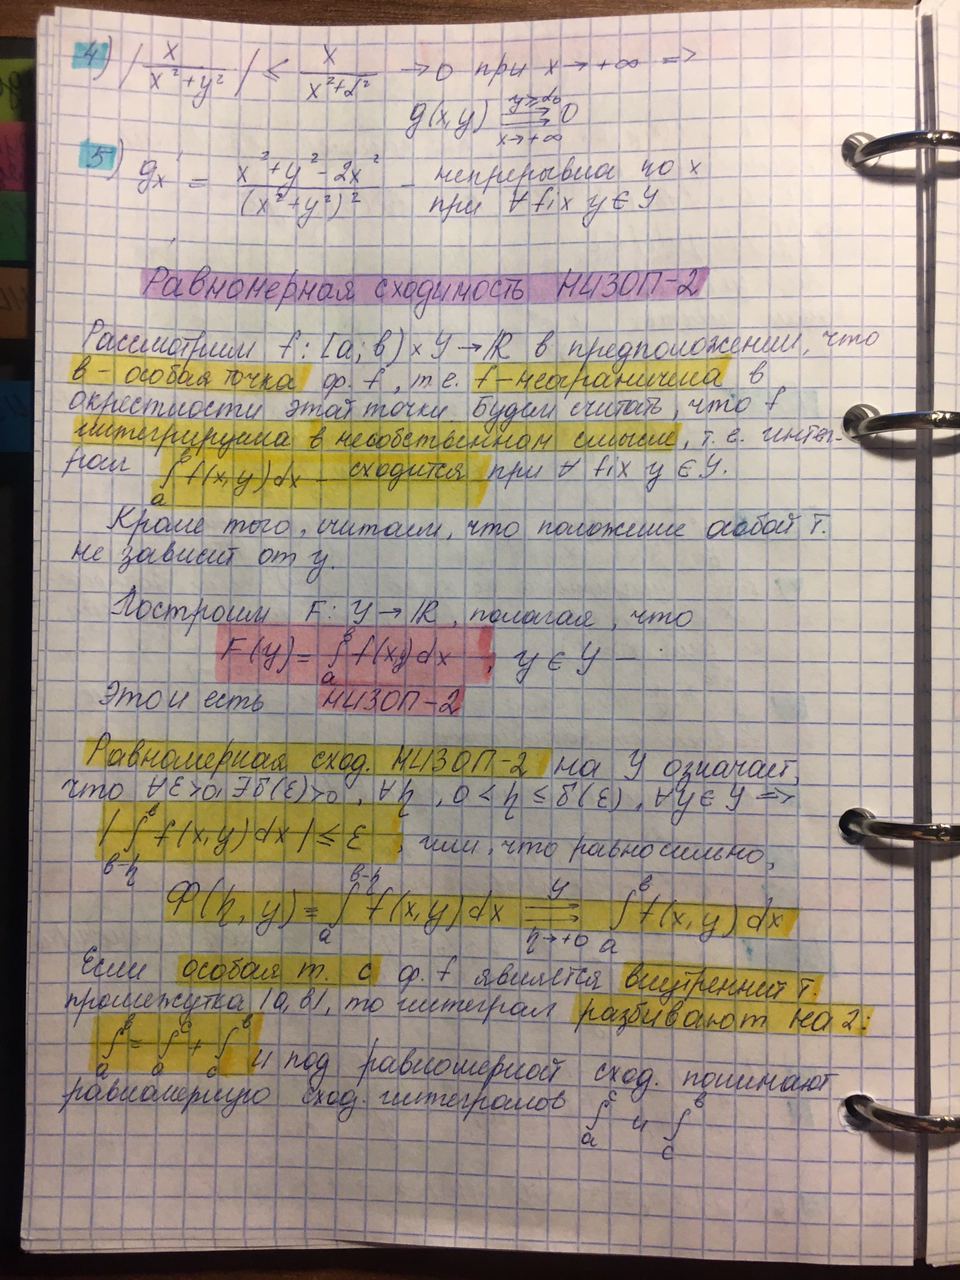 4) | x/(x²+y²) | ≤ x/(x²+α²) → 0 при x → +∞ ⇒
g(x,y) ⇉ 0 (y≥α₀, x→+∞)
5) g'ₓ = (x²+y²-2x²)/(x²+y²)² - непрерывна по x
при ∀ fix y ∈ Y
Равномерная сходимость НИЗОП-2
Рассмотрим f: [a; b) × Y → ℝ в предположении, что
b - особая точка ф. f, т.е. f - неограничена в
окрестности этой точки. Будем считать, что f
интегрируема в несобственном смысле, т.е. интег-
рал ∫ₐᵇ f(x,y) dx - сходится при ∀ fix y ∈ Y.
Кроме того, считаем, что положение особой т.
не зависит от y.
Построим F: Y → ℝ, полагая, что
F(y) = ∫ₐᵇ f(x,y) dx, y ∈ Y -
Это и есть НИЗОП-2
Равномерная сход. НИЗОП-2 на Y означает,
что ∀ε>0, ∃δ(ε)>0, ∀η, 0 < η ≤ δ(ε), ∀y ∈ Y ⇒
| ∫_{b-η}^b f(x,y) dx | ≤ ε, или, что равносильно,
Φ(η, y) = ∫ₐ^{b-η} f(x,y) dx ⇉ (Y, η→+0) ∫ₐᵇ f(x,y) dx
Если особая т. c ф. f является внутренней т.
промежутка |a, b|, то интеграл разбивают на 2:
∫ₐᵇ = ∫ₐᶜ + ∫_cᵇ и под равномерной сход. понимают
равномерную сход. интегралов ∫ₐᶜ и ∫_cᵇ